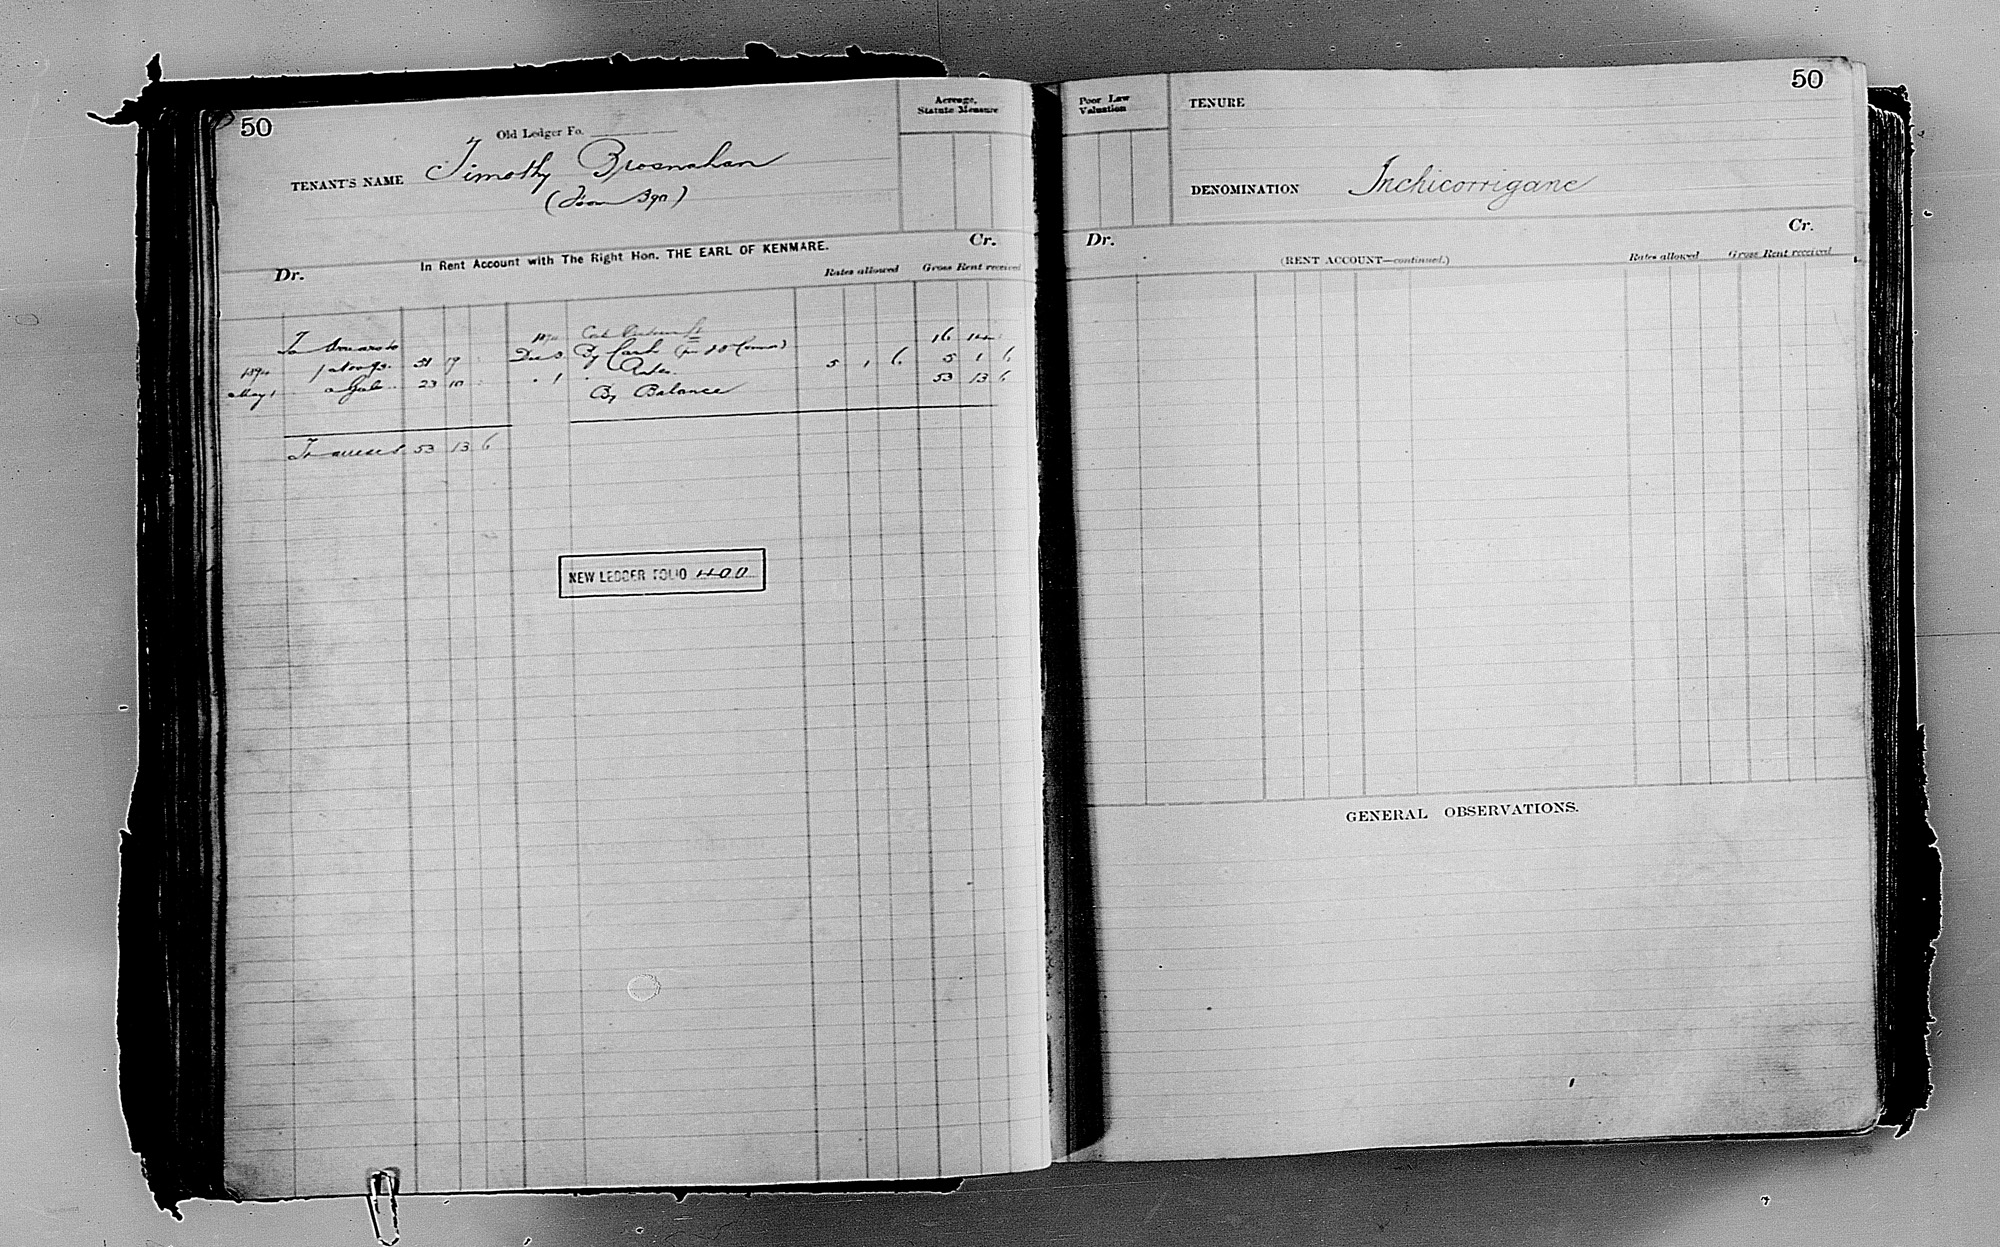 50
Old Ledger Fo.
Acreage,
Statute Measure
TENANT'S NAME Timothy Brosnahan
In Rent Account with The Right Hon. THE EARL OF KENMARE.
Dr. Cr.
Rates allowed Gross Rent received
To Arrears to
1 Nov 93. 51 19 By Cash 16 14
May 1 Gale 23 10 5 1 6 5 1 6
By Balance 53 13 6
To arrears 53 13 6
NEW LEDGER FOLIO 400
50
Poor Law
Valuation
TENURE
DENOMINATION Inchicorrigane
Dr. Cr.
(RENT ACCOUNT—continued.)
Rates allowed Gross Rent received
GENERAL OBSERVATIONS.